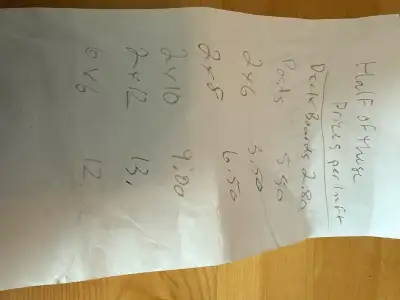 Half of these
Prices per lnft
Deck Boards 2.80
Posts 5.50
2x6 3.50
2x8 6.50
2x10 9.00
2x12 13.
6x6 12